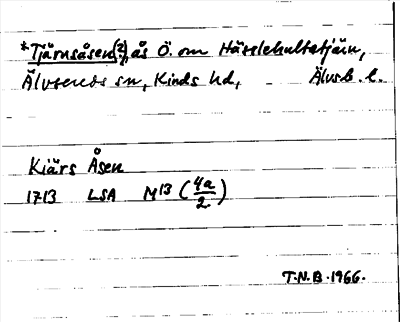 *Tjärnsåsen(?), ås Ö. om Hässlehultatjärn,
Älvsereds sn, Kinds hd, Älvsb. l.
Kiärs Åsen
1713 LSA M13 (4a/2)
T.N.B. 1966.